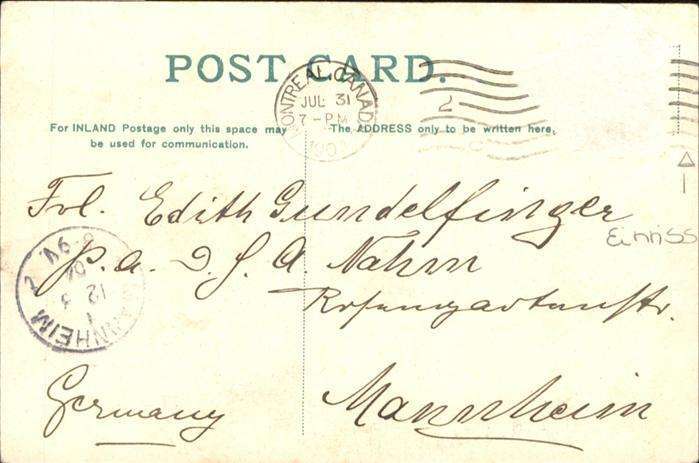 POST CARD.
MONTREAL, CANADA
JUL 31
7-PM
1907
2
For INLAND Postage only this space may
be used for communication.
The ADDRESS only to be written here.
Frl. Edith Gundelfinger
Einriss
p. a. D. J. A. Nahm
Rosengartenstr.
MANNHEIM
12 8
Germany
Mannheim